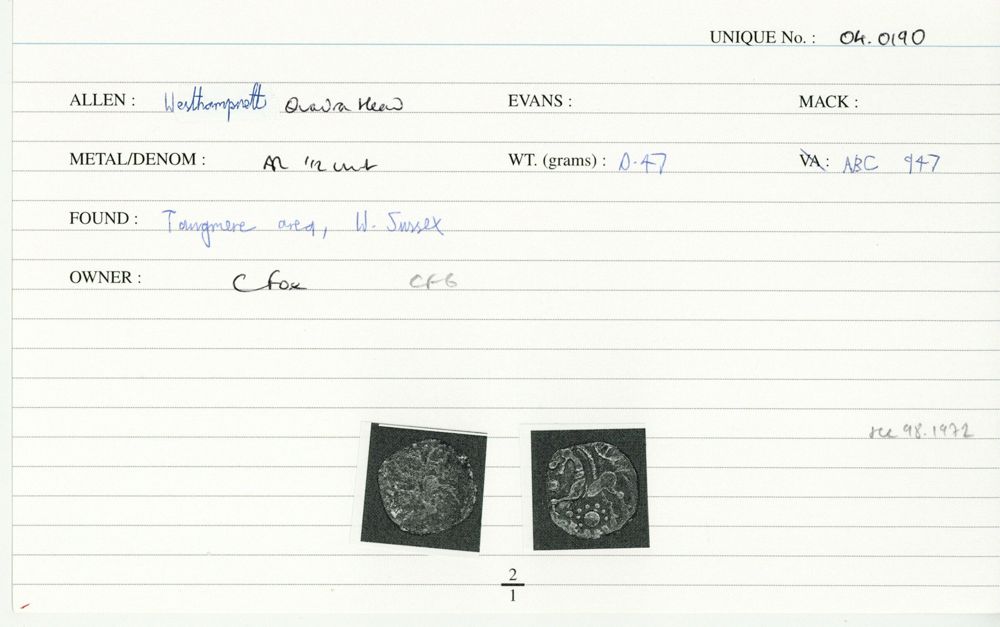 UNIQUE No. : 04.0190
ALLEN : Westhampnett Quadra Head EVANS : MACK :
METAL/DENOM : AR 1/2 unit WT. (grams) : 0.47 VA : ABC 947
FOUND : Tangmere area, W. Sussex
OWNER : C Fox CFG
see 98.1972
2
1